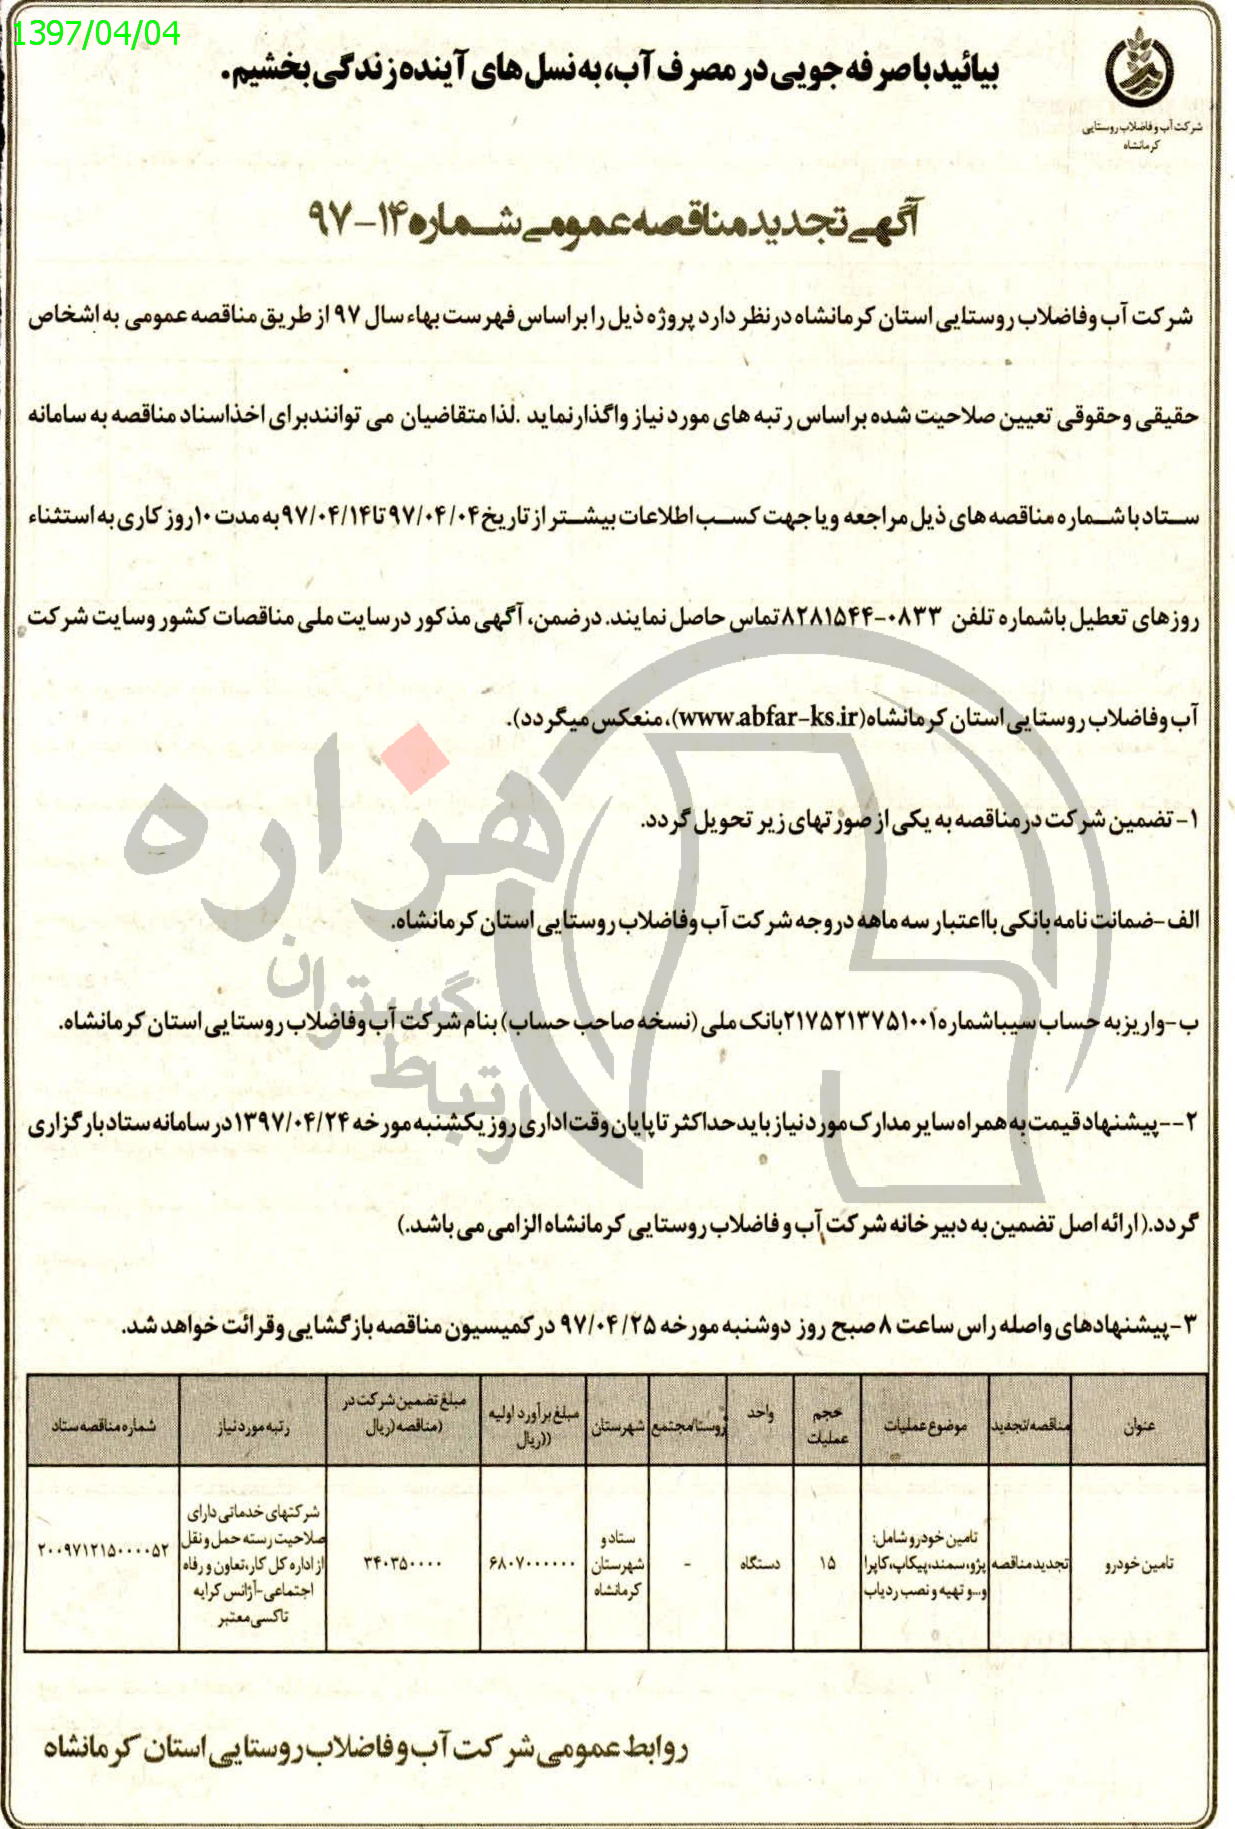 1397/04/04
بیائید با صرفه جویی در مصرف آب، به نسل های آینده زندگی بخشیم.
شرکت آب و فاضلاب روستایی
کرمانشاه
آگهی تجدید مناقصه عمومی شماره ۱۴-۹۷
شرکت آب وفاضلاب روستایی استان کرمانشاه درنظر دارد پروژه ذیل را براساس فهرست بهاء سال ۹۷ از طریق مناقصه عمومی به اشخاص
حقیقی وحقوقی تعیین صلاحیت شده براساس رتبه های مورد نیاز واگذار نماید .لذا متقاضیان می توانندبرای اخذاسناد مناقصه به سامانه
ستاد با شماره مناقصه های ذیل مراجعه ویا جهت کسب اطلاعات بیشتر از تاریخ ۹۷/۰۴/۰۴ تا ۹۷/۰۴/۱۴ به مدت ۱۰روز کاری به استثناء
روزهای تعطیل باشماره تلفن ۰۸۳۳-۸۲۸۱۵۴۴ تماس حاصل نمایند. درضمن، آگهی مذکور درسایت ملی مناقصات کشور وسایت شرکت
آب وفاضلاب روستایی استان کرمانشاه(www.abfar-ks.ir)، منعکس میگردد).
۱- تضمین شرکت درمناقصه به یکی از صورتهای زیر تحویل گردد.
الف-ضمانت نامه بانکی بااعتبار سه ماهه دروجه شرکت آب وفاضلاب روستایی استان کرمانشاه.
ب-واریز به حساب سیباشماره۲۱۷۵۲۱۳۷۵۱۰۰۱بانک ملی (نسخه صاحب حساب) بنام شرکت آب وفاضلاب روستایی استان کرمانشاه.
۲--پیشنهاد قیمت به همراه سایر مدارک مورد نیاز باید حداکثر تا پایان وقت اداری روز یکشنبه مورخه ۱۳۹۷/۰۴/۲۴ در سامانه ستاد بارگزاری
گردد.(ارائه اصل تضمین به دبیرخانه شرکت آب و فاضلاب روستایی کرمانشاه الزامی می باشد.)
۳-پیشنهادهای واصله راس ساعت ۸ صبح روز دوشنبه مورخه ۹۷/۰۴/۲۵ در کمیسیون مناقصه بازگشایی وقرائت خواهد شد.
عنوان
مناقصه/تجدید
موضوع عملیات
حجم
عملیات
واحد
روستا/مجتمع
شهرستان
مبلغ برآورد اولیه
((ریال
مبلغ تضمین شرکت در
(مناقصه (ریال
رتبه مورد نیاز
شماره مناقصه ستاد
تامین خودرو
تجدید مناقصه
تامین خودرو شامل:
پژو، سمند، پیکاپ، کاپرا
و...و تهیه و نصب ردیاب
۱۵
دستگاه
-
ستاد و
شهرستان
کرمانشاه
۶۸۰۷۰۰۰۰۰۰
۳۴۰۳۵۰۰۰۰
شرکتهای خدماتی دارای
صلاحیت رسته حمل و نقل
از اداره کل کار، تعاون و رفاه
اجتماعی-آژانس کرایه
تاکسی معتبر
۲۰۰۹۷۱۲۱۵۰۰۰۰۵۲
روابط عمومی شرکت آب و فاضلاب روستایی استان کرمانشاه
هزاره
گستران
ارتباط